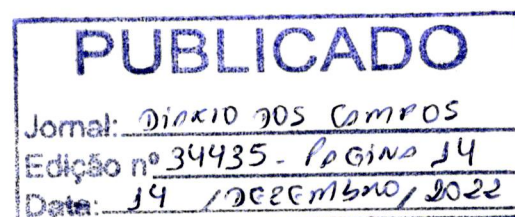 PUBLICADO
Jornal: DIÁRIO DOS CAMPOS
Edição nº 34435 - PAGINA 14
Data: 14 / DEZEMBRO / 2022